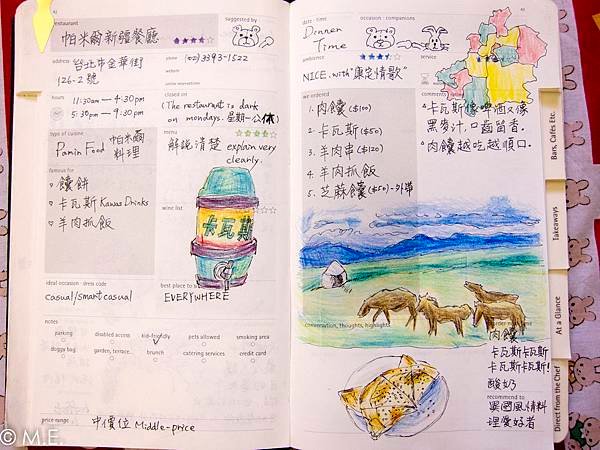 42
restaurant
suggested by
帕米爾新疆餐廳
address
台北市金華街
126-2號
phone (02)3393-1522
website
online reservations
hours
11:30am—4:30pm
5:30pm—9:30pm
closed on
(The restaurant is dark
on mondays. 星期一公休)
type of cuisine
Pamir Food 帕米爾
料理
menu
解説清楚 explain very
clearly.
famous for
饢餅
卡瓦斯 Kawas Drinks
羊肉抓飯
wine list
卡瓦斯
ideal occasion · dress code
casual/smart casual
best place to s
EVERYWHERE
notes
parking
disabled access
kid-friendly
pets allowed
smoking area
doggy bag
garden, terrace...
brunch
catering services
credit card
price range
中價位 Middle-price
date · time
Dinner
Time
occasion · companions
43
ambience
NICE. with "康定情歌"
service
we ordered
1. 肉饢 ($100)
2. 卡瓦斯 ($50)
3. 羊肉串 ($120)
4. 羊肉抓飯
5. 芝蔴饢 ($50)-外帶
comments
卡瓦斯像啤酒又像
黑麥汁. 口齒留香.
肉饢越吃越順口.
conversation, thoughts, highlights
order next time
肉饢!
卡瓦斯卡瓦斯
卡瓦斯卡瓦斯!
酸奶
recommend to
異國風情料
理愛好者
Bars, Cafés Etc.
Takeaways
At a Glance
Direct from the Chef
© M.E.